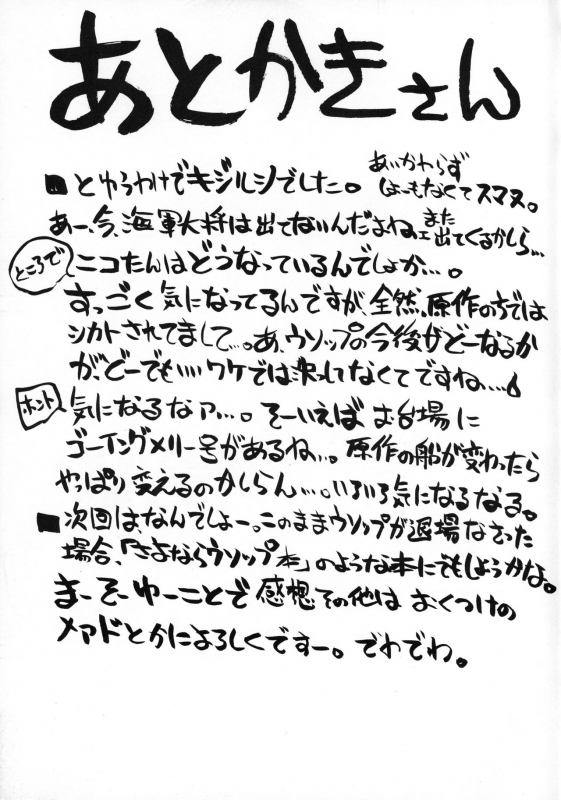 あとかきさん
■とゆうわけでキジルシでした。あいかわらずしょーもなくてスマヌ。
あー、今、海軍大将は出てないんだよねェまた出てくるかしら…
ところで
ニコたんはどうなっているんでしょか…。
すっごく気になってるんですが、全然、原作のちでは
シカトされてまして…。あ、ウソップの今後がどーなるか
が、どーでもいいワケでは決ってなくてですね……。
ホント
気になるなァ…。そーいえばお台場に
ゴーイングメリー号があるね…。原作の船が変わったら
やっぱり変えるのかしらん…。いろいろ気になるなる。
■次回はなんでしょー。このままウソップが退場なさった
場合、「さよならウソップ本」のような本にでもしようかな。
まーそーゆーことで感想その他はおくつけの
メアドとかによろしくですー。でわでわ。